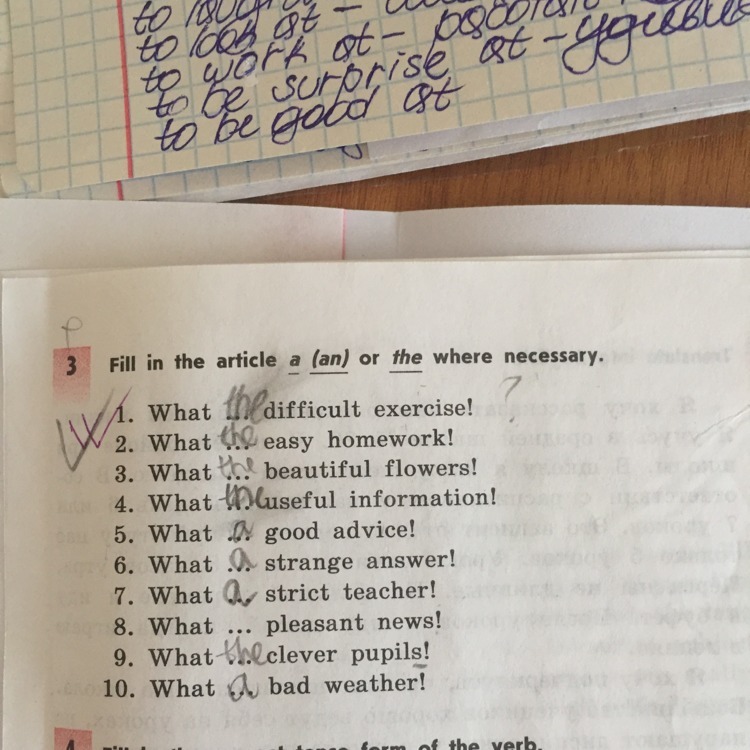 to look at –
to work at –
to be surprise at –
to be good at
3 Fill in the article a (an) or the where necessary.
1. What the difficult exercise! ?
2. What the easy homework!
3. What the beautiful flowers!
4. What the useful information!
5. What a good advice!
6. What a strange answer!
7. What a strict teacher!
8. What ... pleasant news!
9. What the clever pupils!
10. What a bad weather!
tense form of the verb.